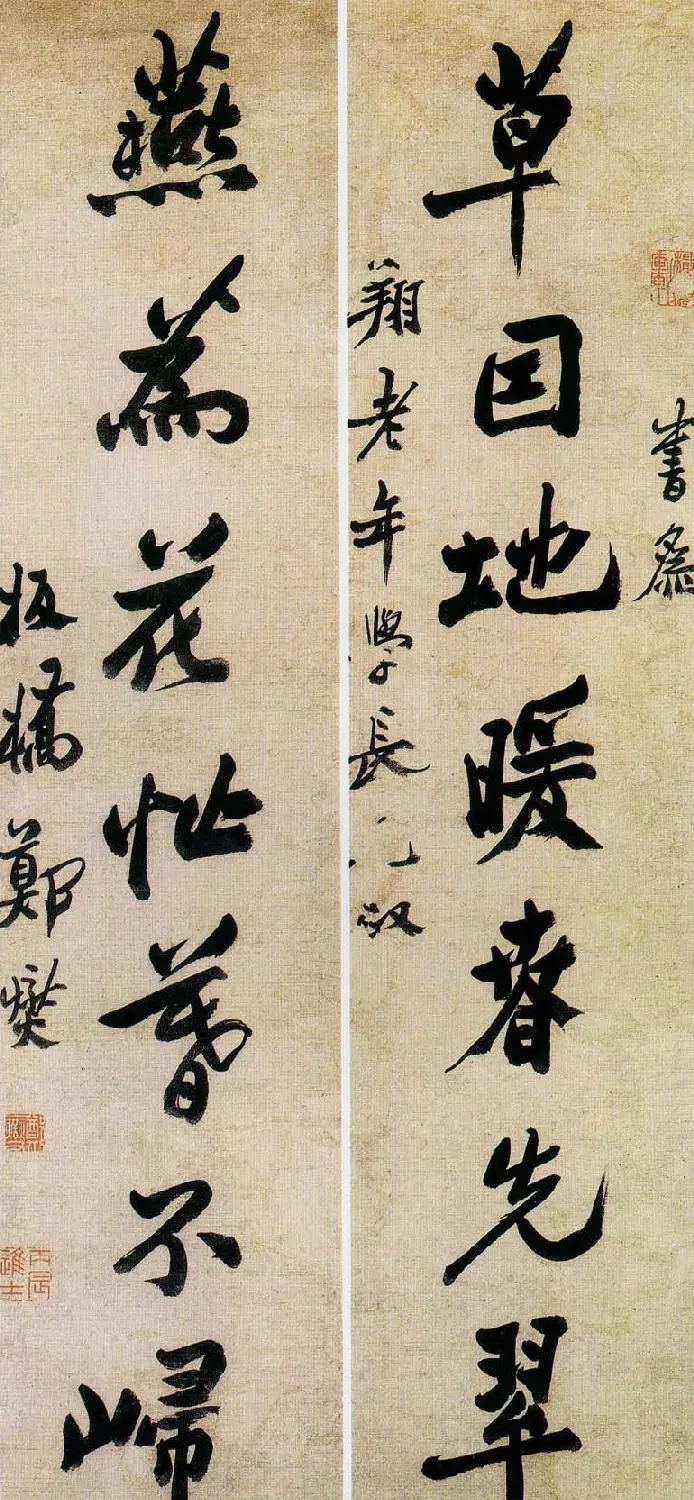 書爲
草因地暖春先翠
翔老年學長兄
燕爲花忙暮不歸
板橋鄭燮
丙辰進士